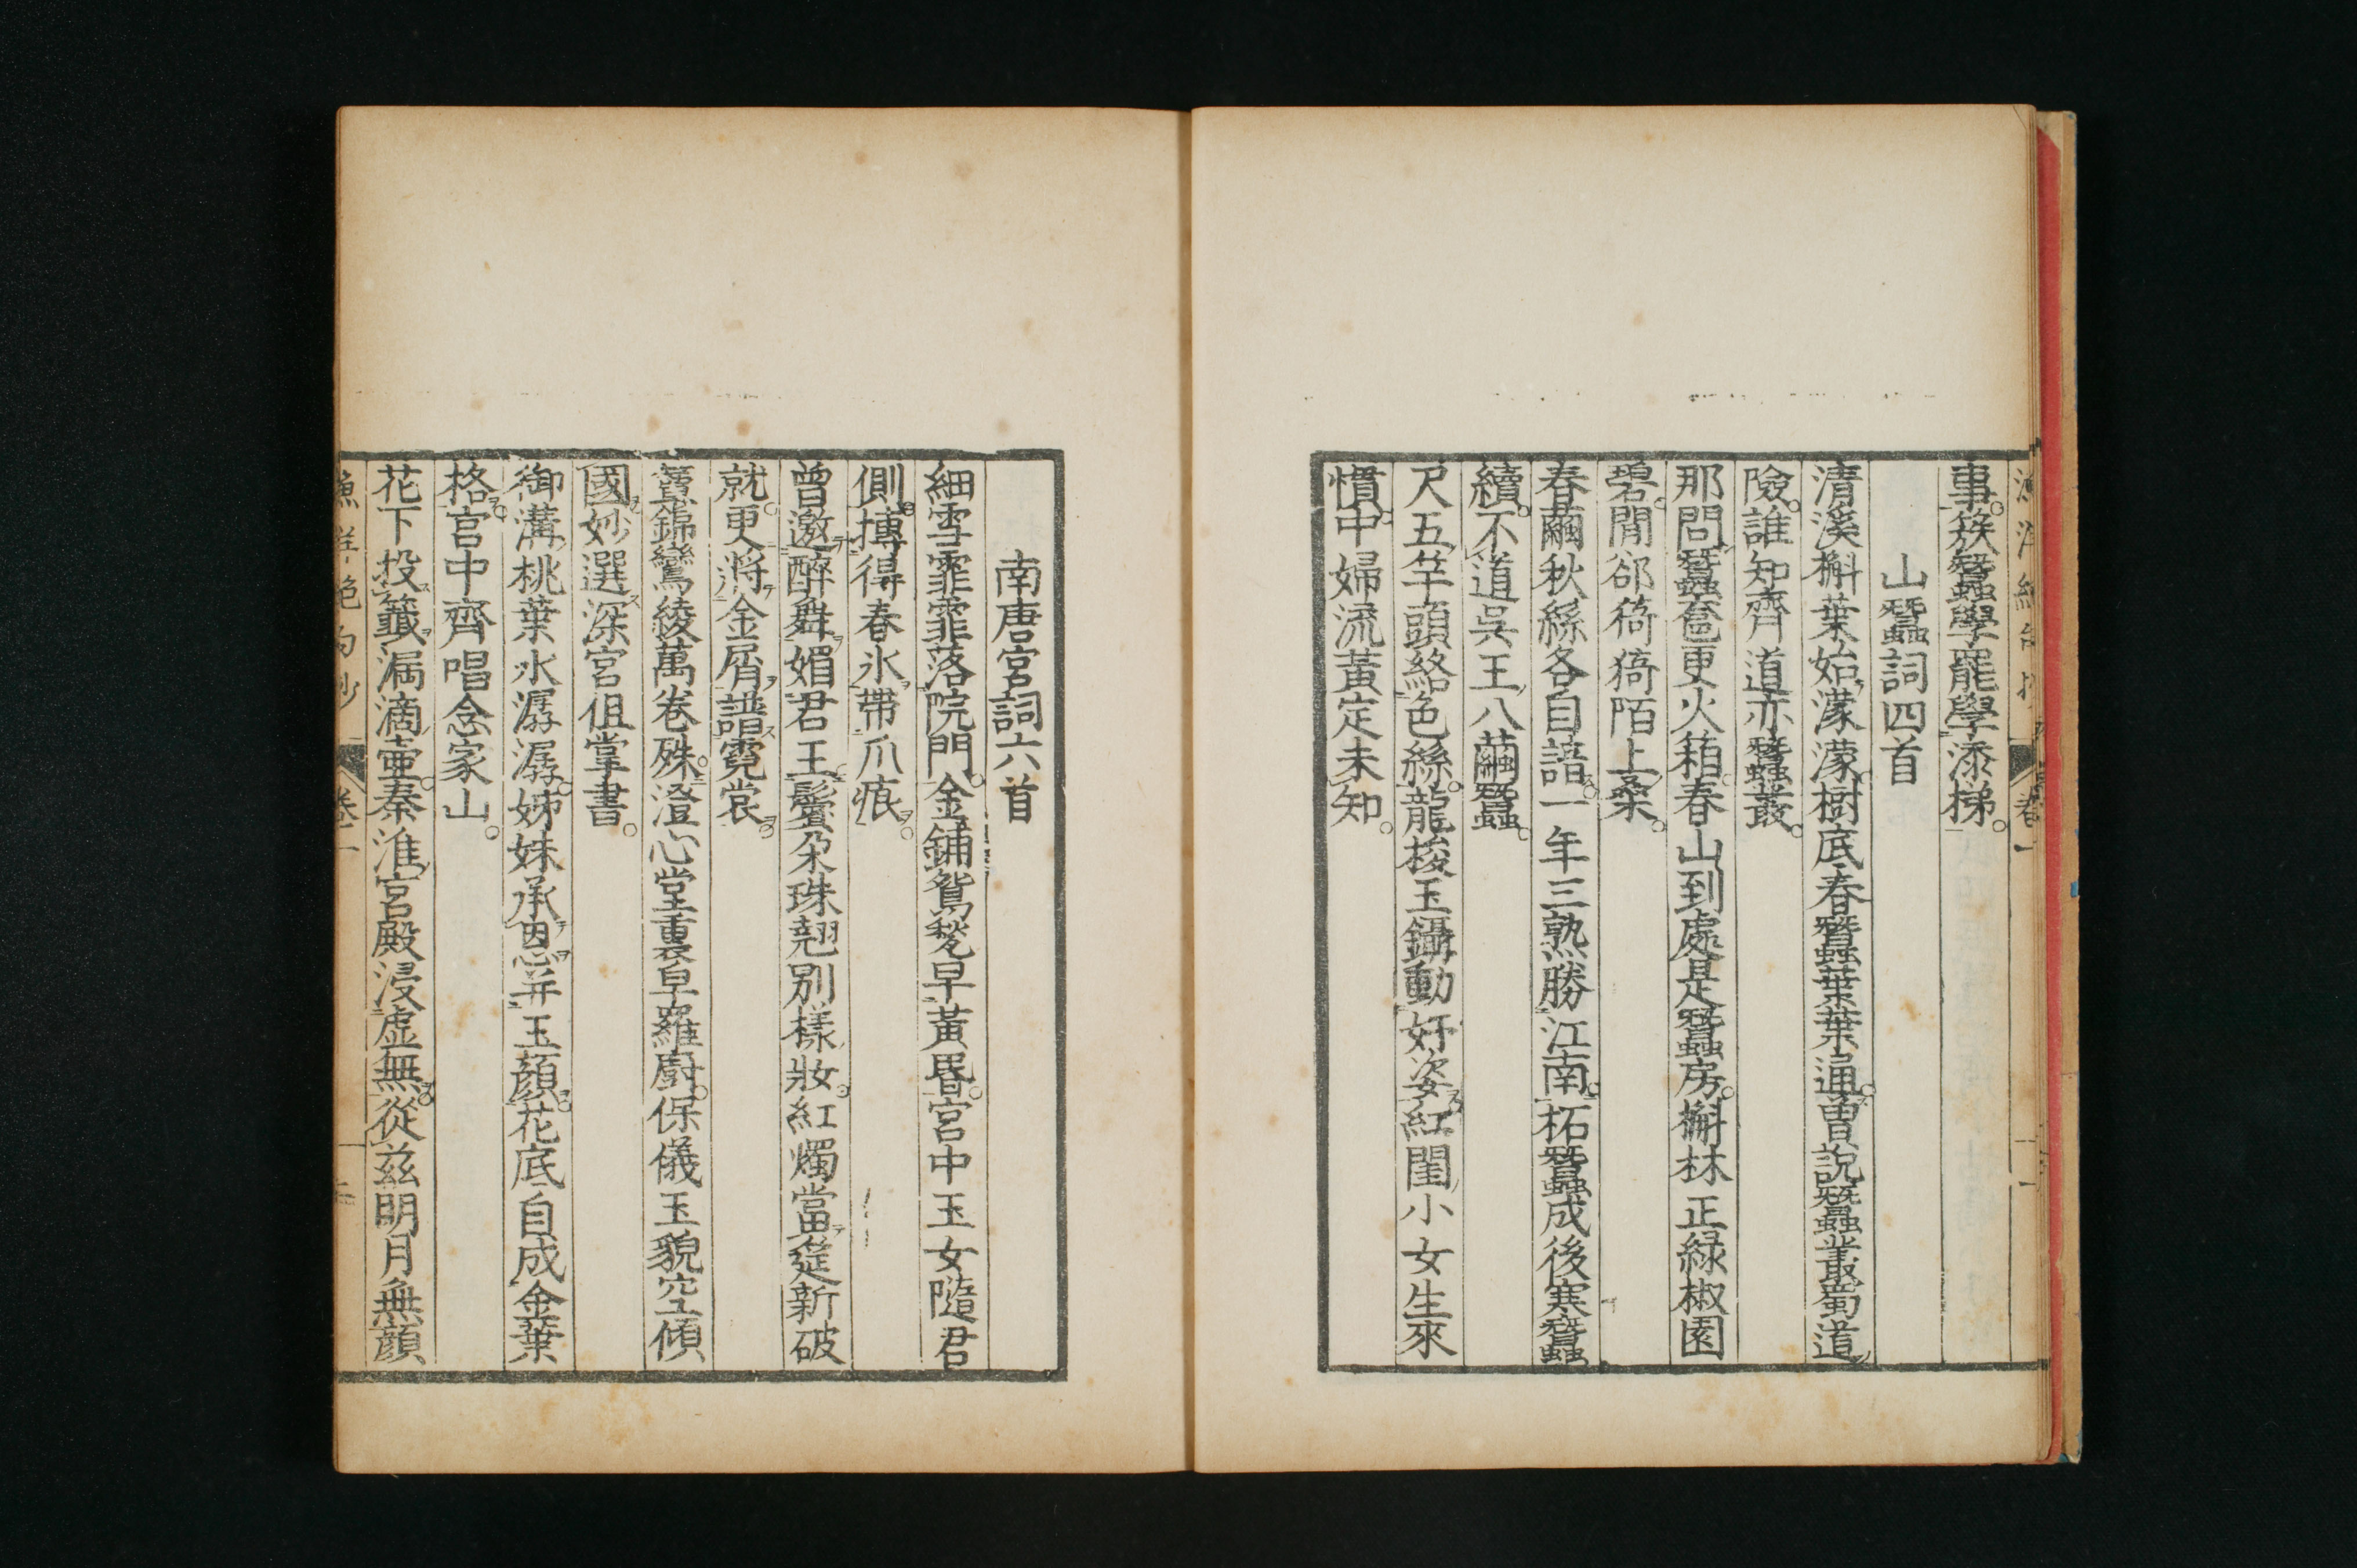 事。簇蠶學罷學添梯。
山蠶詞四首
清溪槲葉始濛濛。樹底春蠶葉葉通。曽說蠶叢蜀道
險。誰知齊道亦蠶叢。
那問蠶奩更火箱。春山到處是蠶房。槲林正緑椒園
碧。閒郤猗猗陌上桒。
春繭秋絲各自諳。一年三熟勝江南。柘蠶成後寒蠶
續。不道吳王八繭蠶。
尺五竿頭絡色絲。龍梭玉鑷動妍姿。紅閨小女生來
慣。中婦流黃定未知。
南唐宮詞六首
細雪霏霏落院門。金鋪鴛甃早黃昏。宮中玉女隨君
側。摶得春氷帶爪痕。
曽邀醉舞媚君王。鬢朶珠翹別樣妝。紅燭當筵新破
就。更將金屑譜霓裳。
蘷錦鸞綾萬卷殊。澄心堂裏皁羅廚。保儀玉貌空傾
國。妙選深宮但掌書。
御溝桃葉水潺潺。姊妹承恩並玉顏。花底自成金葉
格。宮中齊唱念家山。
花下投籤漏滴壷。秦淮宮殿浸虛無。從茲明月無顏
卷一